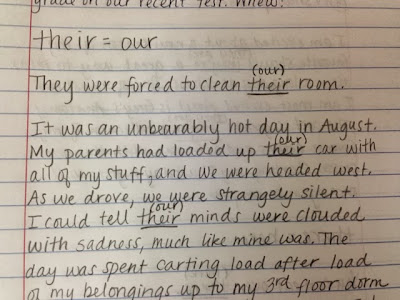 grade on our recent test. Whew!
their = our
(our)
They were forced to clean their room.
It was an unbearably hot day in August.
(our)
My parents had loaded up their car with
all of my stuff, and we were headed west.
As we drove, we were strangely silent.
(our)
I could tell their minds were clouded
with sadness, much like mine was. The
day was spent carting load after load
of my belongings up to my 3rd floor dorm